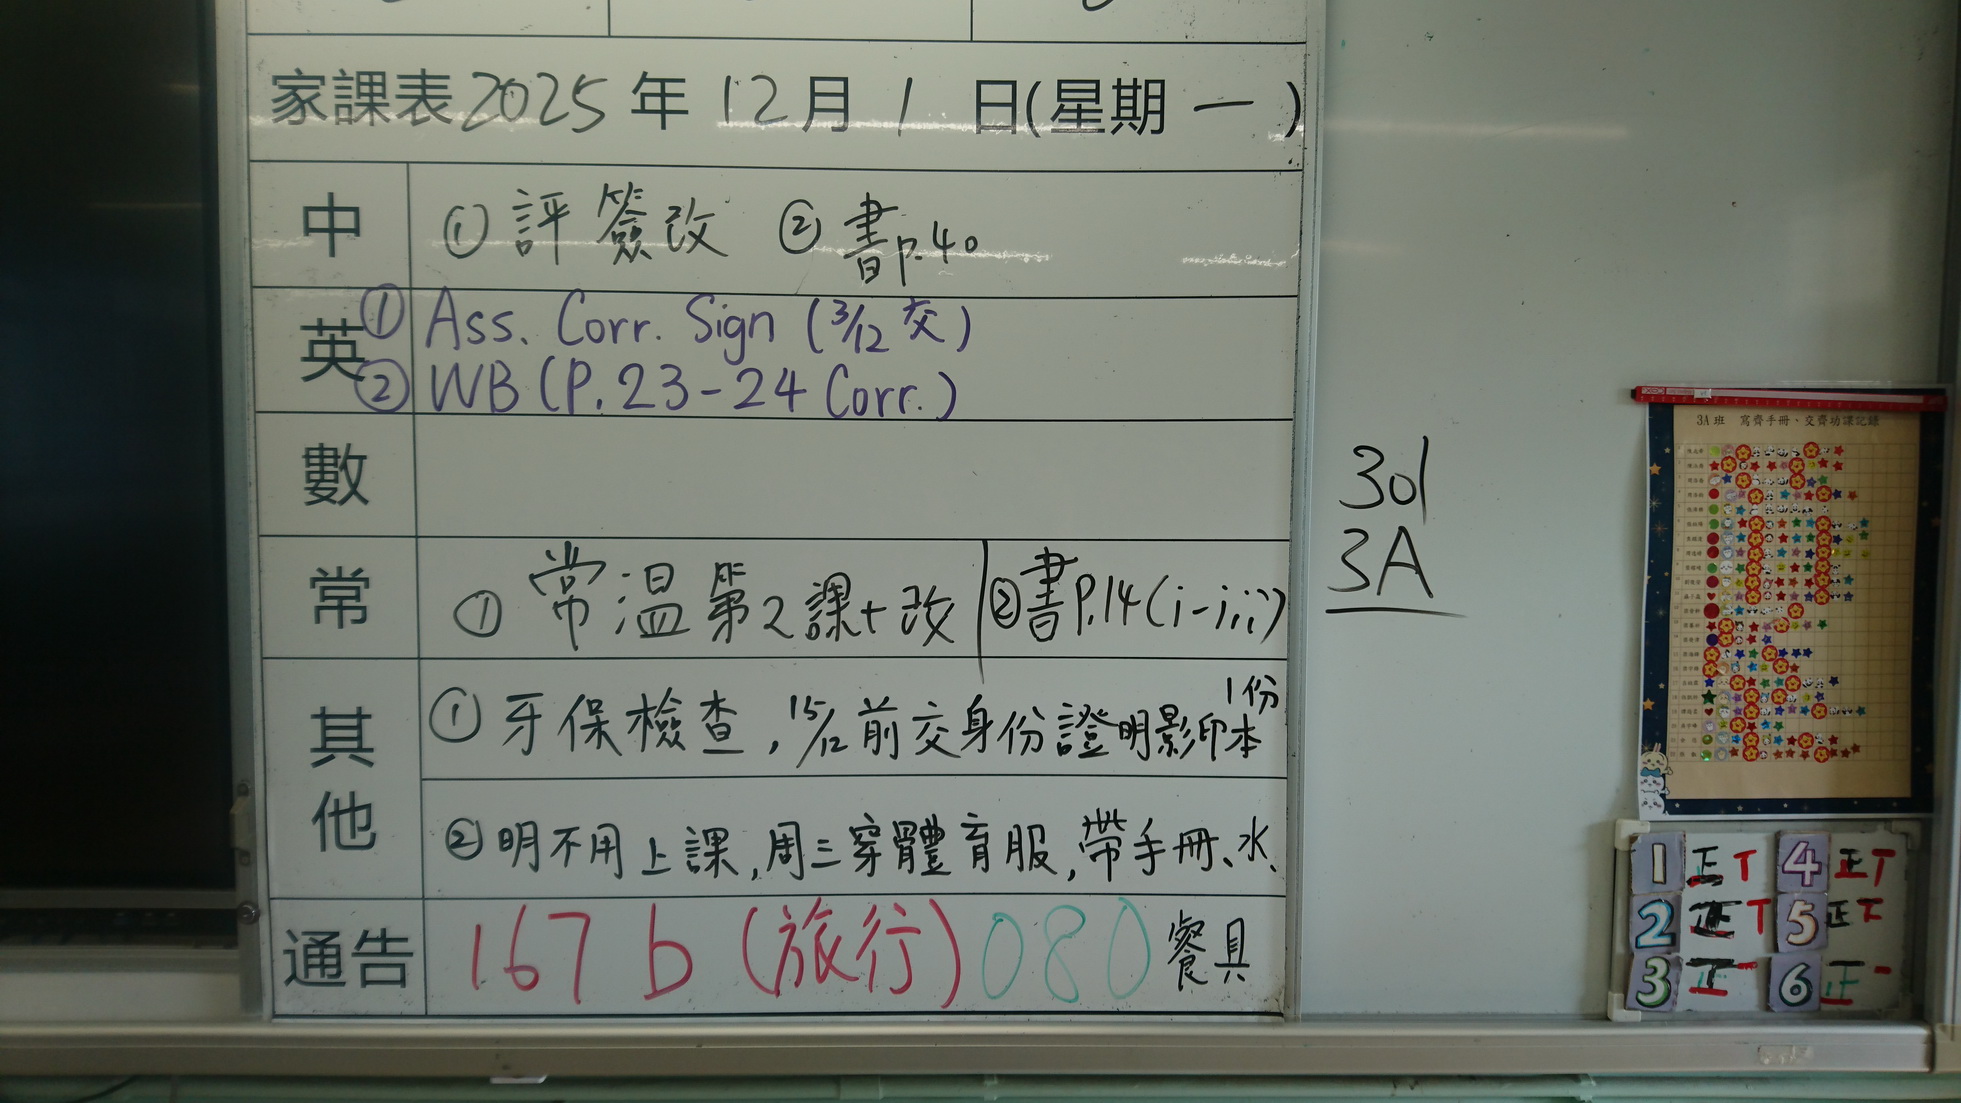 家課表 2025 年 12 月 1 日(星期 一 )
中 ① 評簽改 ② 書p.40
英 ① Ass. Corr. Sign (3/12 交)
② WB (P. 23-24 Corr.)
數
常 ① 常温第2課+改 ② 書P.14(i-iii)
其他 ① 牙保檢查, 15/12前交身份證明影印本 1份
② 明不用上課,周三穿體育服,帶手冊、水、
餐具
通告 167 b (旅行) 080
301
3A
3A 班 寫齊手冊、交齊功課記錄
1 正丅 4 正丅
2 正丅 5 正下
3 正一 6 正一